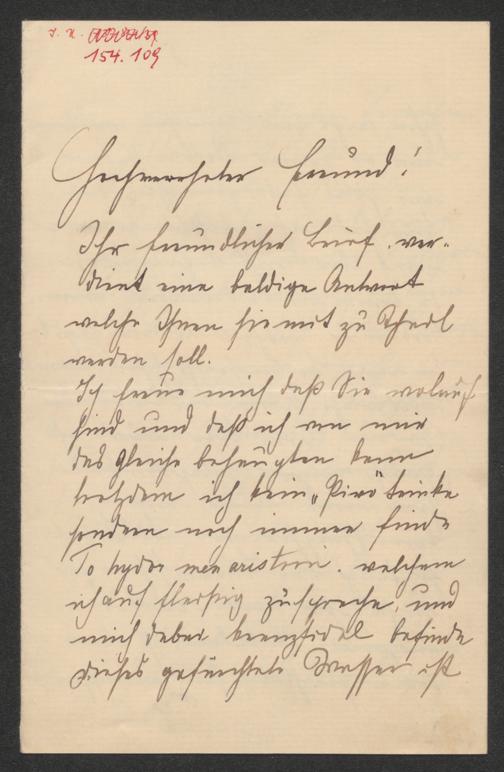 I. N.
154.109
Hochverehrter Freund!
Ihr freundlicher Brief ver-
dient eine baldige Antwort
welche Ihnen hiemit zu Theil
werden soll.
Ich freue mich daß Sie wolauf
sind und daß ich von mir
das Gleiche behaupten kann
trotzdem ich kein „ trinke
sondern noch immer finde
To hydor men ariston. welchem
ich auch fleißig zuspreche, und
mich dabei kreuzfidel befinde
dieses gefürchtete Wasser ist